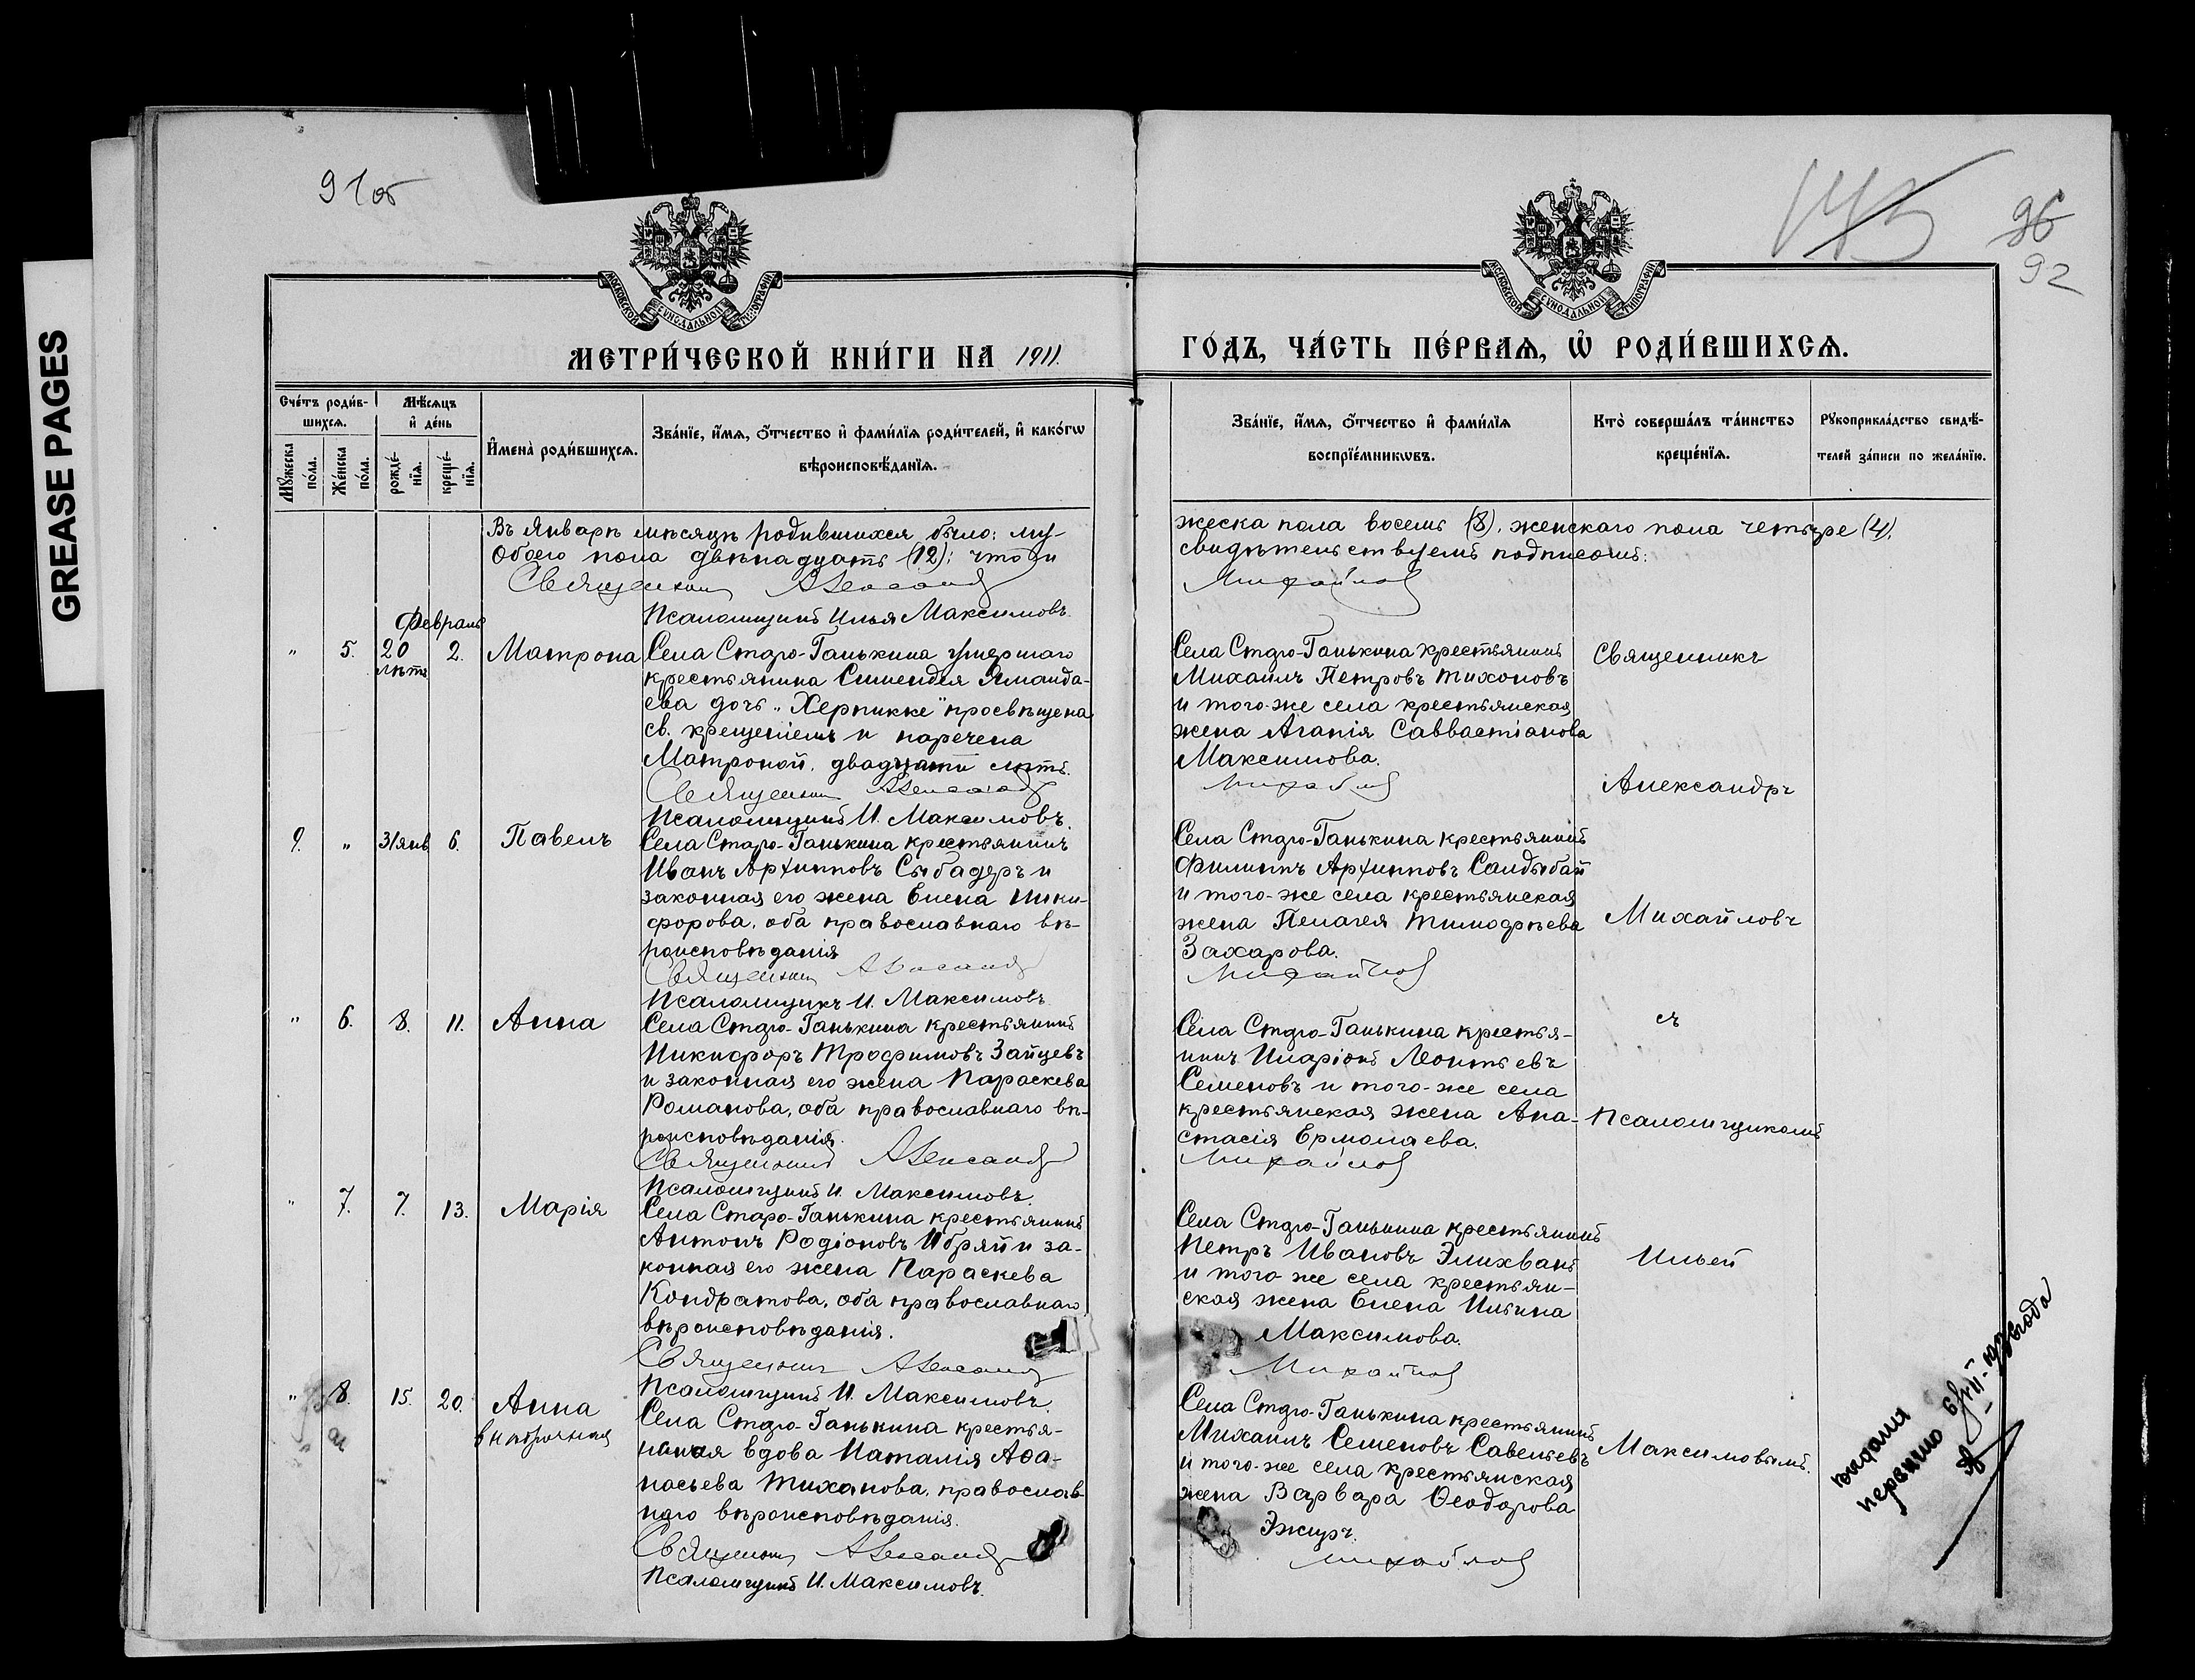 GREASE PAGES
91об
143
96
92
МОСКОВСКОЙ СѴНОДАЛЬНОЙ ТИПОГРАФІИ
МОСКОВСКОЙ СѴНОДАЛЬНОЙ ТИПОГРАФІИ
МЕТРИ́ЧЕСКОЙ КНИ́ГИ НА 1911.
ГО́ДЪ, ЧА́СТЬ ПЕ́РВАѦ, Ѡ҆ РОДИ́ВШИХСѦ.
Сче́тъ роди́в-
шихсѧ.
Мꙋжеска по́ла.
Же́нска по́ла.
Мѣ́сѧцъ
и҆ де́нь
рожде́-
нїѧ.
креще́-
нїѧ.
И҆мена̀ роди́вшихсѧ.
Зва́нїе, и҆́мѧ, ѻ҆́тчество и҆ фами́лїѧ роди́телей, и҆ како́гѡ
вѣроисповѣ́данїѧ.
Зва́нїе, и҆́мѧ, ѻ҆́тчество и҆ фами́лїѧ
воспрїе́мникѡвъ.
Кто̀ соверша́лъ та́инство
креще́нїѧ.
Рꙋкоприкла́дство свидѣ́-
телей за́писи по жела́нїю.
Въ Январѣ мѣсяцѣ родившихся было: му-
жеска пола восемь (8), женскаго пола четыре (4),
Обоего пола двѣнадцать (12): что и
свидѣтельствуемъ подписомъ:
Священникъ Александръ
Михайловъ
Псаломщикъ Илья Максимовъ
Февраль
" 5. 20 лѣтъ 2. Матрона
Села Старо-Ганькина умершаго
крестьянина Симендея Яманда-
ева дочь „Херпикке" просвѣщена
св. крещеніемъ и наречена
Матроной, двадцати лѣтъ.
Священникъ Александръ
Псаломщикъ И. Максимовъ.
Села Старо-Ганькина крестьянинъ
Михаилъ Петровъ Тихоновъ
и того-же села крестьянская
жена Агапія Савватіанова
Максимова.
Михайловъ
Священникъ
Александръ
Михайловъ
съ
Псаломщикомъ
Ильей
Максимовымъ.
9. " 31 янв 6. Павелъ
Села Старо-Ганькина крестьянинъ
Иванъ Архипповъ Сыбадеръ и
законная его жена Елена Ники-
форова, оба православнаго вѣ-
роисповѣданія
Священникъ Александръ
Псаломщикъ И. Максимовъ
Села Старо-Ганькина крестьянинъ
Филиппъ Архипповъ Салдыбай
и того-же села крестьянская
жена Пелагея Тимофѣева
Захарова.
Михайловъ
" 6. 8. 11. Анна
Села Старо-Ганькина крестьянинъ
Никифоръ Трофимовъ Зайцевъ
и законная его жена Параскева
Романова, оба православнаго вѣ-
роисповѣданія.
Священникъ Александръ
Псаломщикъ И. Максимовъ.
Села Старо-Ганькина крестья-
нинъ Иларіонъ Леонтьевъ
Семеновъ и того-же села
крестьянская жена Ана-
стасія Ермолаева.
Михайловъ
" 7. 7. 13. Марія
Села Старо-Ганькина крестьянинъ
Антонъ Родіоновъ Ибряй и за-
конная его жена Параскева
Кондратова, оба православнаго
вѣроисповѣданія.
Священникъ Александръ
Псаломщикъ И. Максимовъ.
Села Старо-Ганькина крестьянинъ
Петръ Ивановъ Элихванъ
и того же села крестьян-
ская жена Елена Ильина
Максимова.
Михайловъ
" 8. 15. 20. Анна
внѣбрачная
Села Старо-Ганькина крестья-
нская вдова Наталія Аѳа-
насьева Тиханова, православ-
наго вѣроисповѣданія.
Священникъ Александръ
Псаломщикъ И. Максимовъ.
Села Старо-Ганькина крестьянинъ
Михаилъ Семеновъ Савельевъ
и того-же села крестьянская
жена Варвара Ѳеодорова
Эжеръ.
Михайловъ
выдана